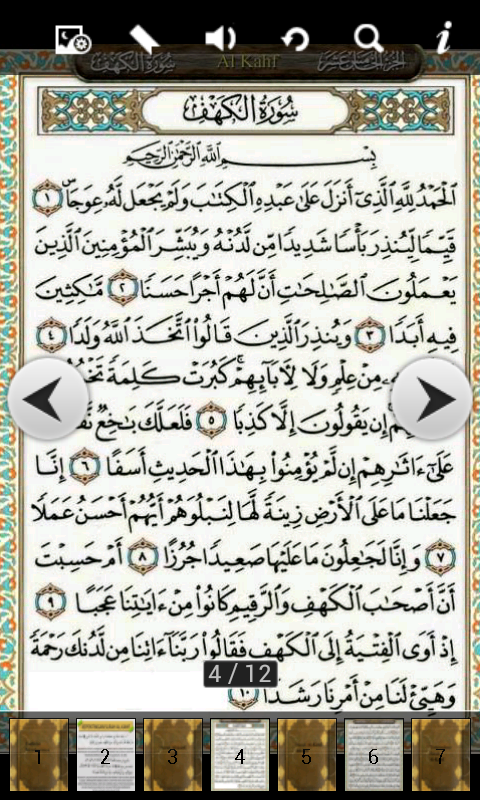 سُورَةُ الكَهْفِ Al Kahf الجُزْءُ الخَامِسَ عَشَرَ
سُورَةُ الكَهْفِ
بِسْمِ اللَّهِ الرَّحْمَٰنِ الرَّحِيمِ
الْحَمْدُ لِلَّهِ الَّذِي أَنزَلَ عَلَىٰ عَبْدِهِ الْكِتَابَ وَلَمْ يَجْعَل لَّهُ عِوَجًا ۜ ١
قَيِّمًا لِّيُنذِرَ بَأْسًا شَدِيدًا مِّن لَّدُنْهُ وَيُبَشِّرَ الْمُؤْمِنِينَ الَّذِينَ
يَعْمَلُونَ الصَّالِحَاتِ أَنَّ لَهُمْ أَجْرًا حَسَنًا ٢ مَّاكِثِينَ
فِيهِ أَبَدًا ٣ وَيُنذِرَ الَّذِينَ قَالُوا اتَّخَذَ اللَّهُ وَلَدًا ٤
مِنْ عِلْمٍ وَلَا لِآبَائِهِمْ ۚ كَبُرَتْ كَلِمَةً
إِن يَقُولُونَ إِلَّا كَذِبًا ٥ فَلَعَلَّكَ بَاخِعٌ
عَلَىٰ آثَارِهِمْ إِن لَّمْ يُؤْمِنُوا بِهَٰذَا الْحَدِيثِ أَسَفًا ٦ إِنَّا
جَعَلْنَا مَا عَلَى الْأَرْضِ زِينَةً لَّهَا لِنَبْلُوَهُمْ أَيُّهُمْ أَحْسَنُ عَمَلًا
٧ وَإِنَّا لَجَاعِلُونَ مَا عَلَيْهَا صَعِيدًا جُرُزًا ٨ أَمْ حَسِبْتَ
أَنَّ أَصْحَابَ الْكَهْفِ وَالرَّقِيمِ كَانُوا مِنْ آيَاتِنَا عَجَبًا ٩
إِذْ أَوَى الْفِتْيَةُ إِلَى الْكَهْفِ فَقَالُوا رَبَّنَا آتِنَا مِن لَّدُنكَ رَحْمَةً
4 / 12
وَهَيِّئْ لَنَا مِنْ أَمْرِنَا رَشَدًا ١٠
1 2 3 4 5 6 7